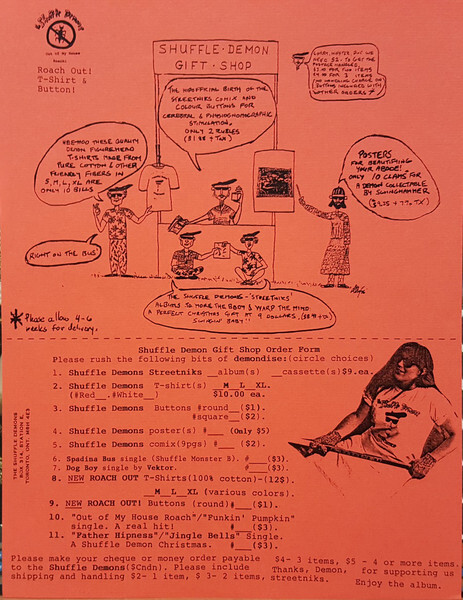 Shuffle Demons
Out of My House
Roach!
Roach Out!
T-Shirt &
Button!
SHUFFLE·DEMON
GIFT · SHOP
SORRY, HIPSTER, BUT WE
NEED $2 TO GET THE
POSTAGE HANDLED,
THE UNOFFICIAL BIRTH OF THE
STREETNIKS COMIX AND
COLOUR BUTTONS FOR
CEREBRAL & PHYSIOGNOMOGRAPHIC
STIMULATION,
ONLY 2 RUBLES
($1.88 + TAX)
THESE QUALITY
DEMON FIGUREHEAD
T-SHIRTS MADE FROM
PURE COTTON & OTHER
FRIENDLY FIBERS IN
S, M, L, XL ARE
ONLY 10 BILLS
RIGHT ON THE BUS
POSTERS
FOR BEAUTIFYING
YOUR ABODE!
ONLY 10 CLAMS FOR
A DEMON COLLECTABLE
BY SWINGHAMMER
THE SHUFFLE DEMONS - 'STREETNIKS'
ALBUMS TO MOVE THE BODY & WARP THE MIND
A PERFECT CHRISTMAS GIFT AT 9 DOLLARS,
SWINGIN' BABY!!
* Please allow 4-6
weeks for delivery.
Shuffle Demon Gift Shop Order Form
Please rush the following bits of demondise:(circle choices)
1. Shuffle Demons Streetniks __album(s) ___cassette(s)$9.ea.
2. Shuffle Demons T-shirt(s) __M__L__XL.
(#Red__.#White__) $10.00 ea.
3. Shuffle Demons Buttons #round__($1).
#square__($2).
4. Shuffle Demons poster(s) #____(Only $5)
5. Shuffle Demons comix(9pgs) #___($2).
6. Spadina Bus single (Shuffle Monster B). #____($3).
7. Dog Boy single by Vektor. #____($3).
8. NEW ROACH OUT T-Shirts(100% cotton)-(12$).
__M__L__XL (various colors).
9. NEW ROACH OUT! Buttons (round)#___($1).
10. "Out of My House Roach"/"Funkin' Pumpkin"
single. A real hit! #___($3).
11. "Father Hipness"/"Jingle Bells" Single.
A Shuffle Demon Christmas. #____($3).
THE SHUFFLE DEMONS
BOX 314, STATION E,
TORONTO, ONT. M6H 4E3
Please make your cheque or money order payable
to the Shuffle Demons($Cndn). Please include
shipping and handling $2- 1 item, $ 3- 2 items,
$4- 3 items, $5 - 4 or more items.
Thanks, Demon, for supporting us
streetniks. Enjoy the album.